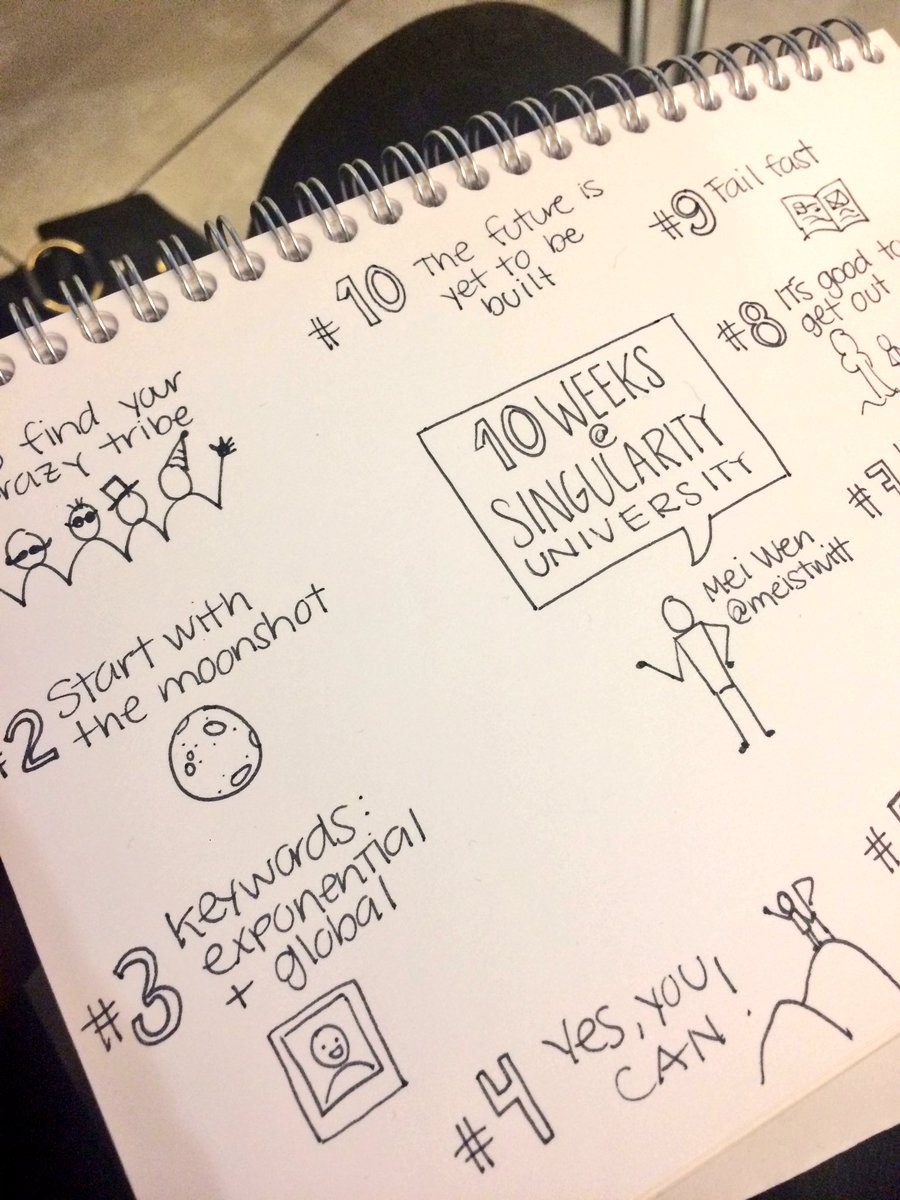 10 WEEKS
@
SINGULARITY
UNIVERSITY
Mei Wen
@meistwitt
find your
tribe
#2 Start with
the moonshot
#3 keywords:
exponential
+ global
#4 Yes, YOU,
CAN.
#
#7
#8 It's good to
get out
#9 Fail fast
#10 The future is
yet to be
built